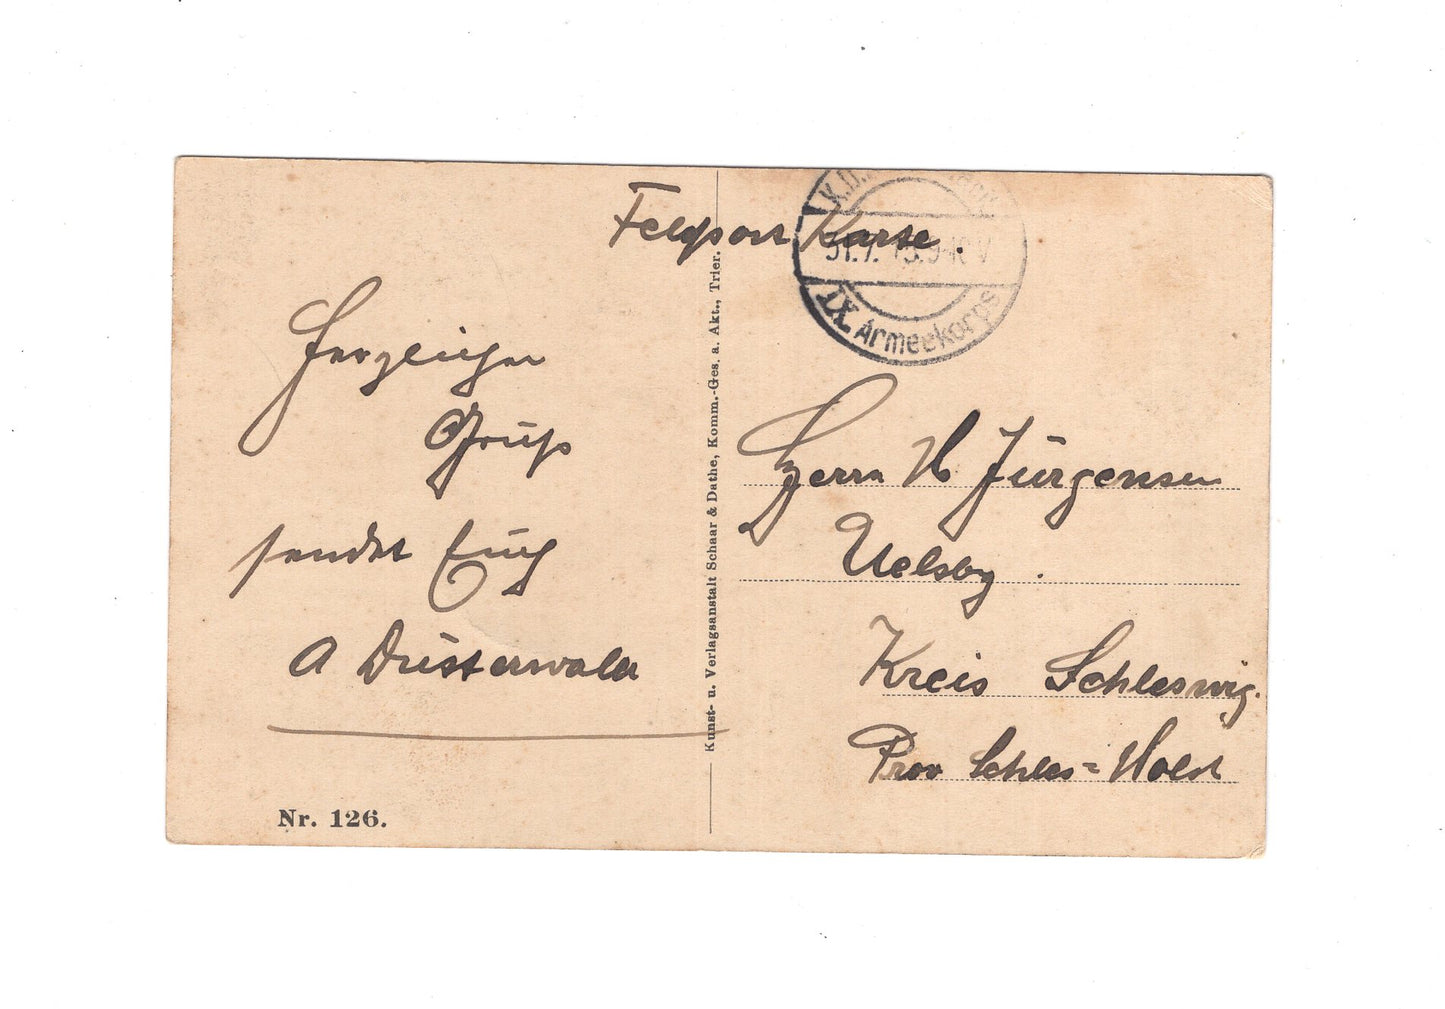 Feldpost Karte.
K.D.
31.7. 9-10 V
IX. Armeekorps
Herzlichen
Gruß
sendet Euch
A Düsterwald
Nr. 126.
Kunst- u. Verlagsanstalt Schaar & Dathe, Komm.-Ges. a. Akt., Trier.
Herrn H Jürgensen
Uelsby.
Kreis Schleswig.
Prov Schles=Holst